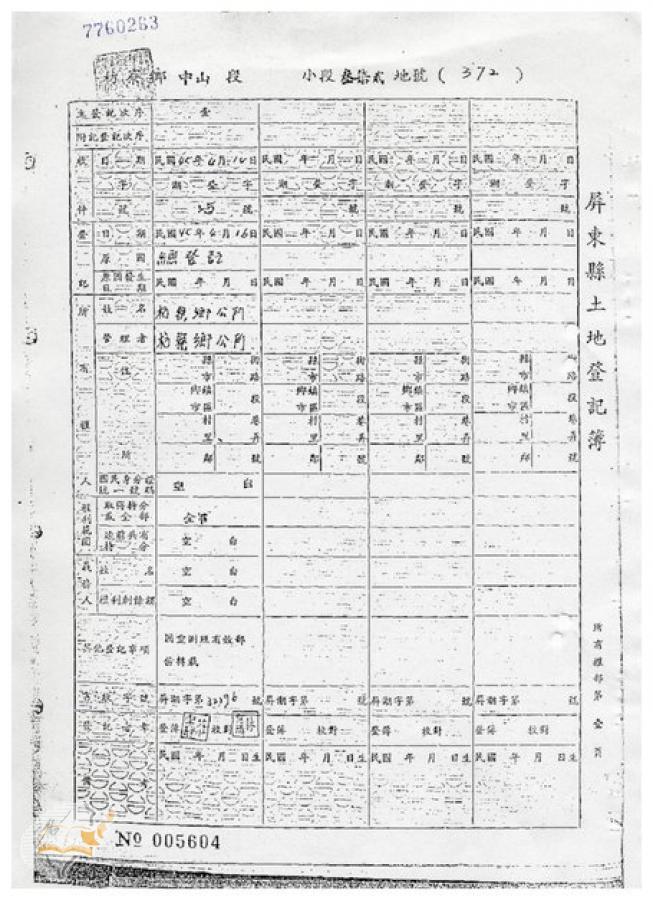 7760263
枋寮鄉 中山 段 小段 叁柒貳 地號 ( 372 )
屏東縣土地登記簿
主登記次序 壹
附記登記次序
收 日期 民國45年4月14日 民國 年 月 日 民國 年 月 日 民國 年 月 日
字 潮登字 潮登字 潮登字 潮登字
件 號 號 號 號 號
登 日期 民國45年4月16日 民國 年 月 日 民國 年 月 日 民國 年 月 日
原因 總登記
記 原因發生日期 民國 年 月 日 民國 年 月 日 民國 年 月 日 民國 年 月 日
所 姓名 枋寮鄉公所
管理者 枋寮鄉公所
有 住 縣市 街路 縣市 街路 縣市 街路 縣市 街路
鄉鎮市區 段 鄉鎮市區 段 鄉鎮市區 段 鄉鎮市區 段
權 村里 巷弄 村里 巷弄 村里 巷弄 村里 巷弄
所 鄰 號 鄰 號 鄰 號 鄰 號
人 國民身分證統一號碼 空白
權利範圍 取得持分或全部 全部
連前共有持分 空白
義務人 姓名 空白
權利剩餘額 空白
其他登記事項
因空測照有效部
份轉載
書狀字號 屏潮字第 號 屏潮字第 號 屏潮字第 號 屏潮字第 號
登記 登簿 校對 登簿 校對 登簿 校對 登簿 校對
民國 年 月 日生 民國 年 月 日生 民國 年 月 日生 民國 年 月 日生
所有權部第 壹 頁
No 005604